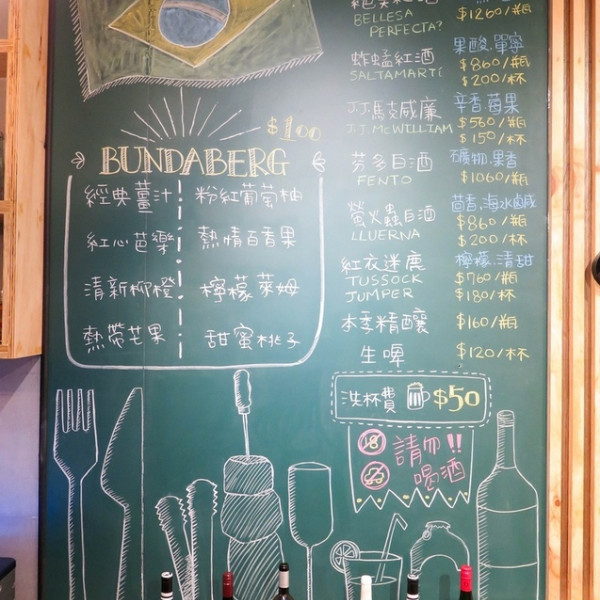 $1260/瓶
BELLESA
PERFECTA?
炸蜢紅酒
SALTAMARTI
果酸.單寧
$860/瓶
$200/杯
J.J.馬支威廉
J.T.McWILLIAM
辛香.莓果
$560/瓶
$150/杯
芬多白酒
FENTO
礦物.果香
$1060/瓶
螢火蟲白酒
LLUERNA
茴香.海水鹹
$860/瓶
$200/杯
紅衣迷鹿
TUSSOCK
JUMPER
檸檬.清甜
$760/瓶
$180/杯
本季精釀
$160/瓶
生啤
$120/杯
洗杯費 $50
18
請勿!!
喝酒
$100
BUNDABERG
經典薑汁 粉紅葡萄柚
紅心芭樂 熱情百香果
清新柳橙 檸檬萊姆
熱帶芒果 甜蜜桃子